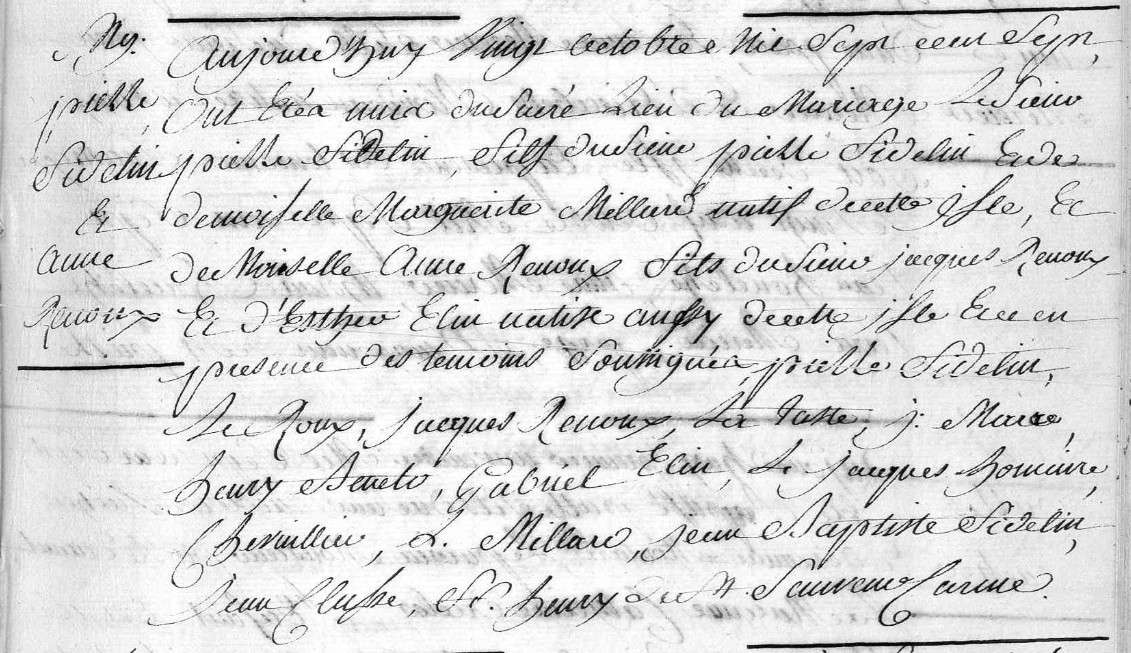 Mg.
pierre
Sidelin
Et
Anne
Renoux
Aujourd'huy Vingt octobre Mil Sept cent Sept,
Ont Eté unix du Sacré Lien du Mariage Le Sieur
pierre Sidelin, fils du Sieur pierre Sidelin Et de
demoiselle Marguerite Millard natif decette Isle, Et
de Moiselle Anne Renoux fils du Sieur jacques Renoux
Et d'Esther Elin native aussy decette jsle Et ce en
presence des temoins Soussignéz, pierre Sidelin,
Le Roux, jacques Renoux, La taste, j. Marce,
henry Beneto, Gabriel Elin, Le jacques
L. Millard, jean Baptiste Sidelin,
Jean f. henry de St. Sauveur Carme.